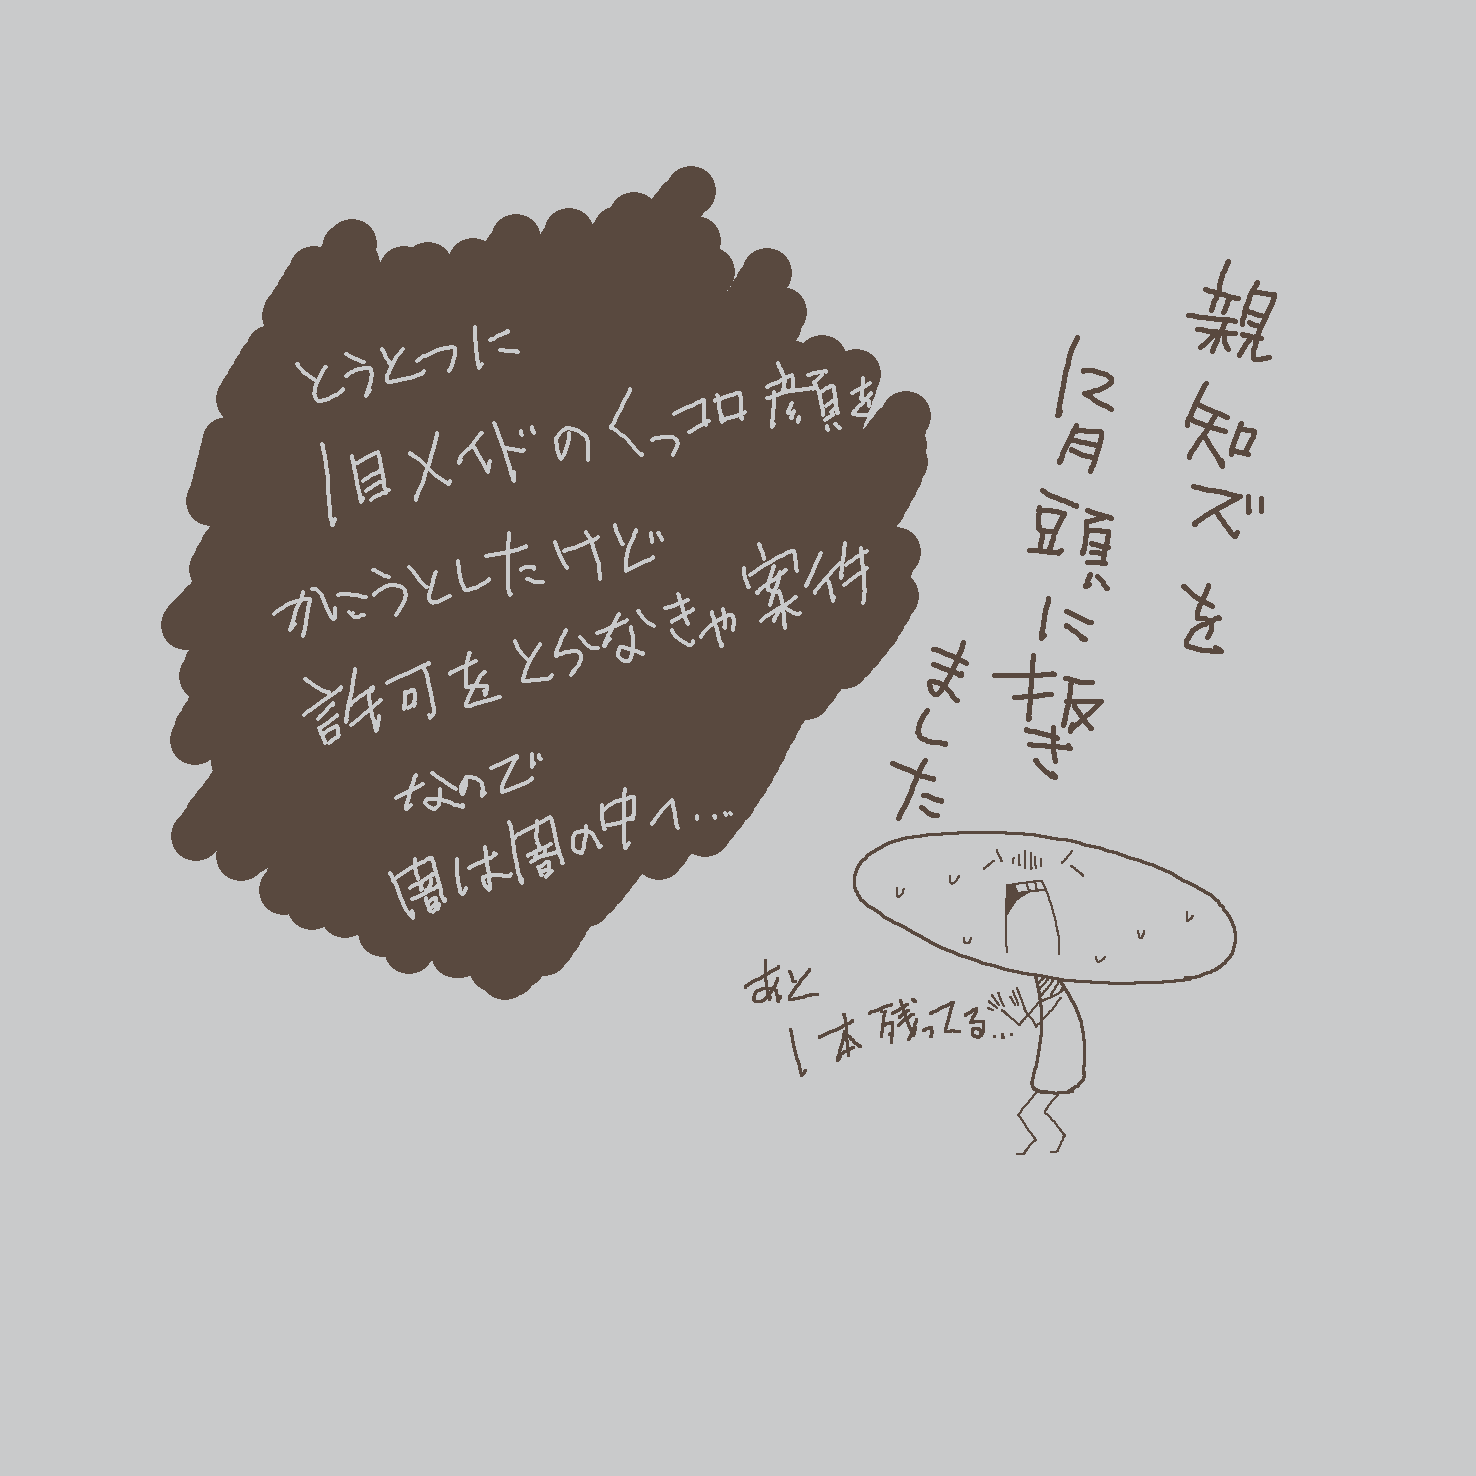 親知ズを
12月頭に抜き
ました
とうとつに
旧メイドのくっコロ顔を
かこうとしたけど
許可をとらなきゃ案件
なので
闇は闇の中へ…
あと
1本残ってる…